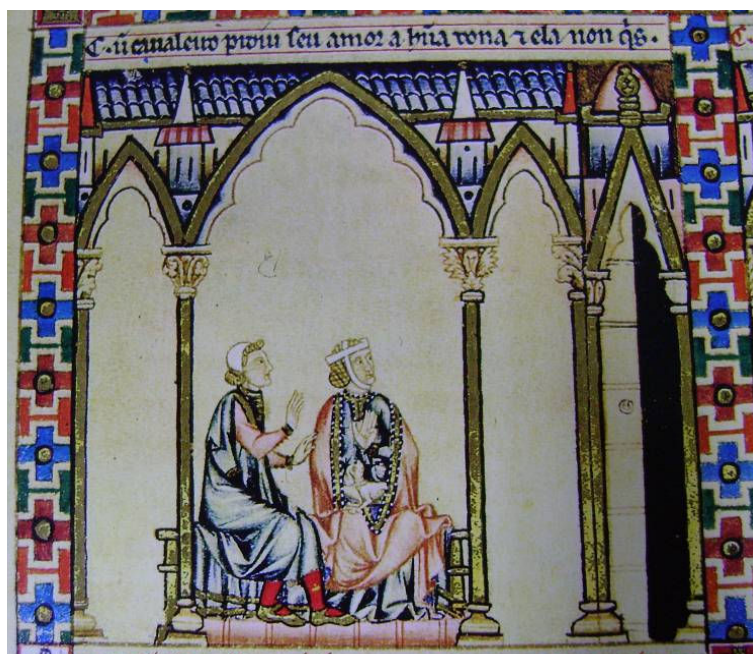 C. ũ cavaleiro pidiu seu amor a hũa dona ⁊ ela non q̇s.